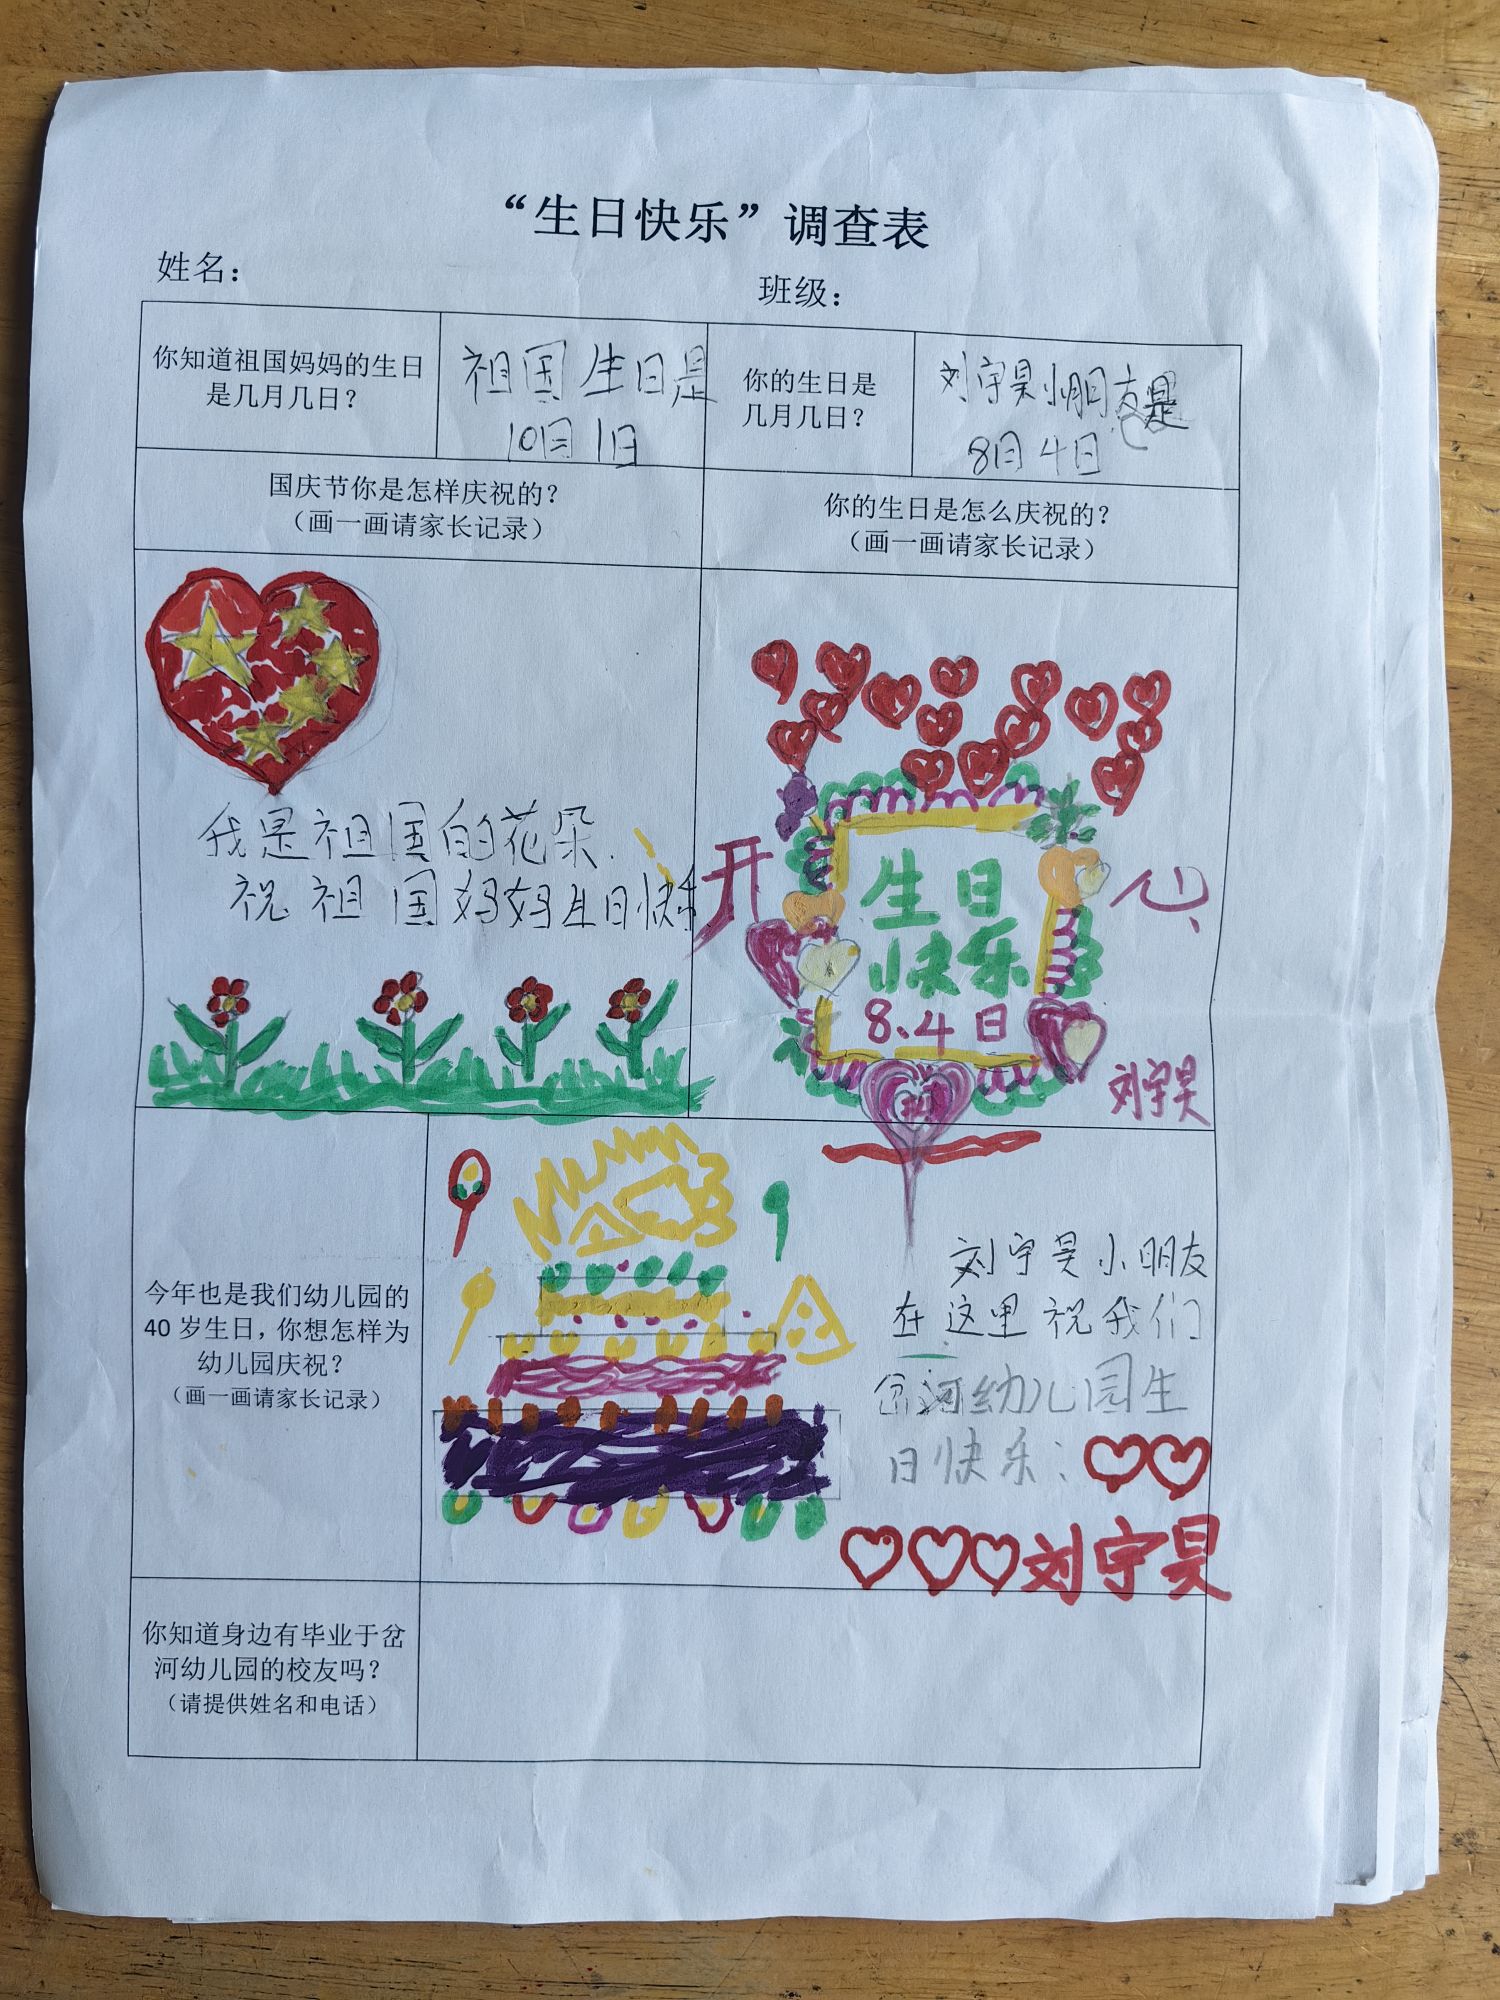 “生日快乐”调查表
姓名：
班级：
你知道祖国妈妈的生日
是几月几日？
祖国生日是
10月1日
你的生日是
几月几日？
刘宇昊小朋友是
8月4日
国庆节你是怎样庆祝的？
（画一画请家长记录）
你的生日是怎么庆祝的？
（画一画请家长记录）
我是祖国的花朵.
祝祖国妈妈生日快乐
开
心
生日
快乐
8、4日
刘宇昊
今年也是我们幼儿园的
40岁生日，你想怎样为
幼儿园庆祝？
（画一画请家长记录）
刘宇昊小朋友
在这里祝我们
岔河幼儿园生
日快乐：
刘宇昊
你知道身边有毕业于岔
河幼儿园的校友吗？
（请提供姓名和电话）